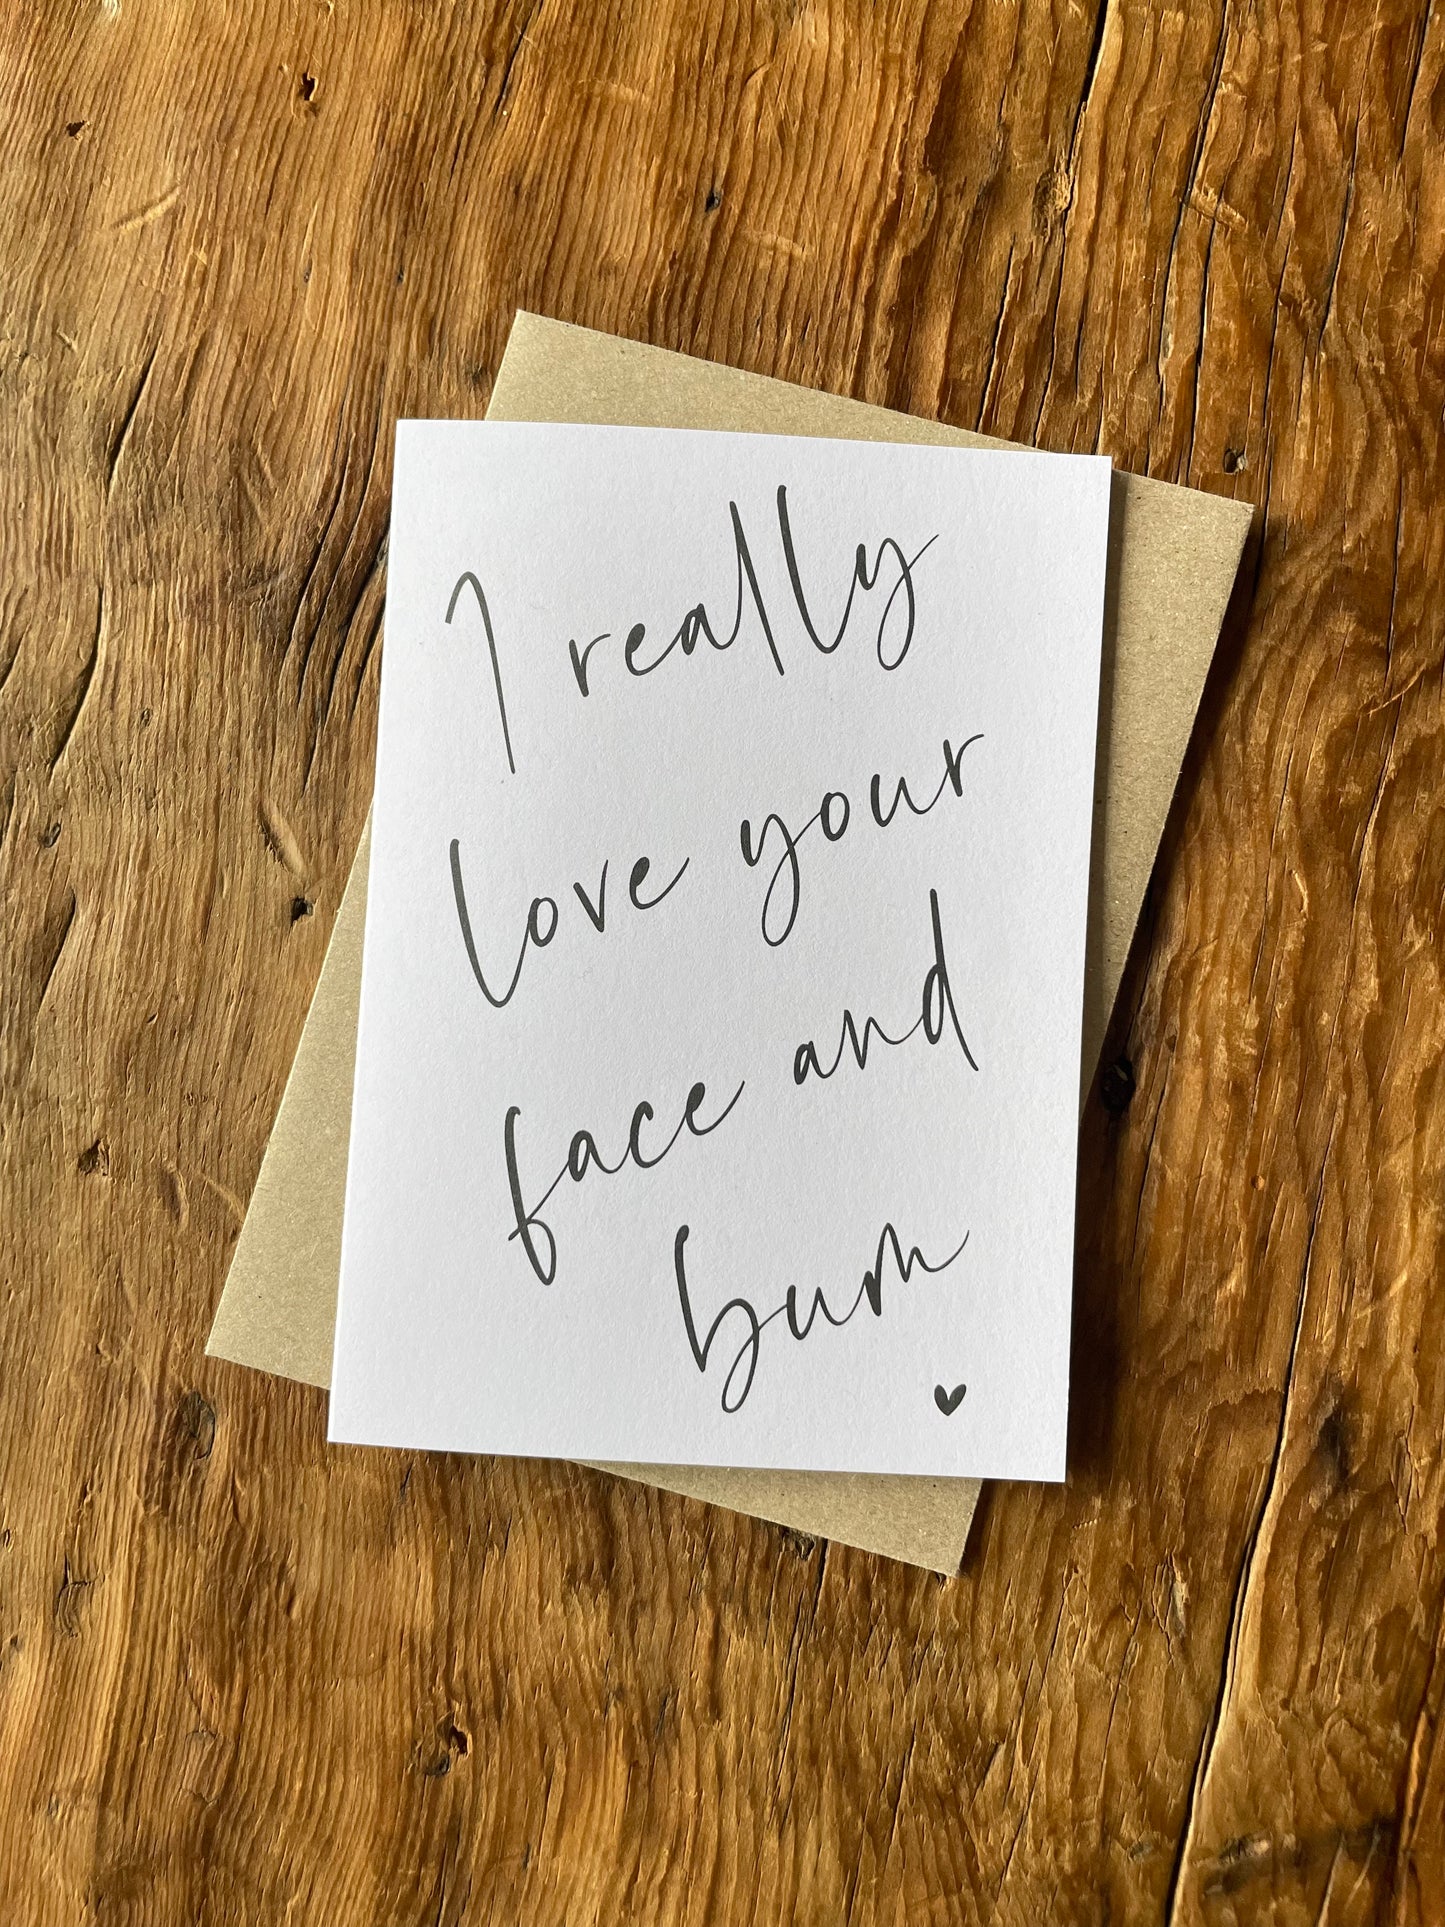 I really
love your
face and
bum